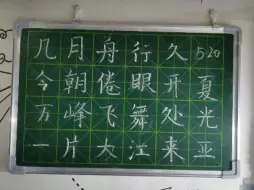 几月舟行久
今朝倦眼开
万峰飞舞处
一片大江来
520
夏
光
亚